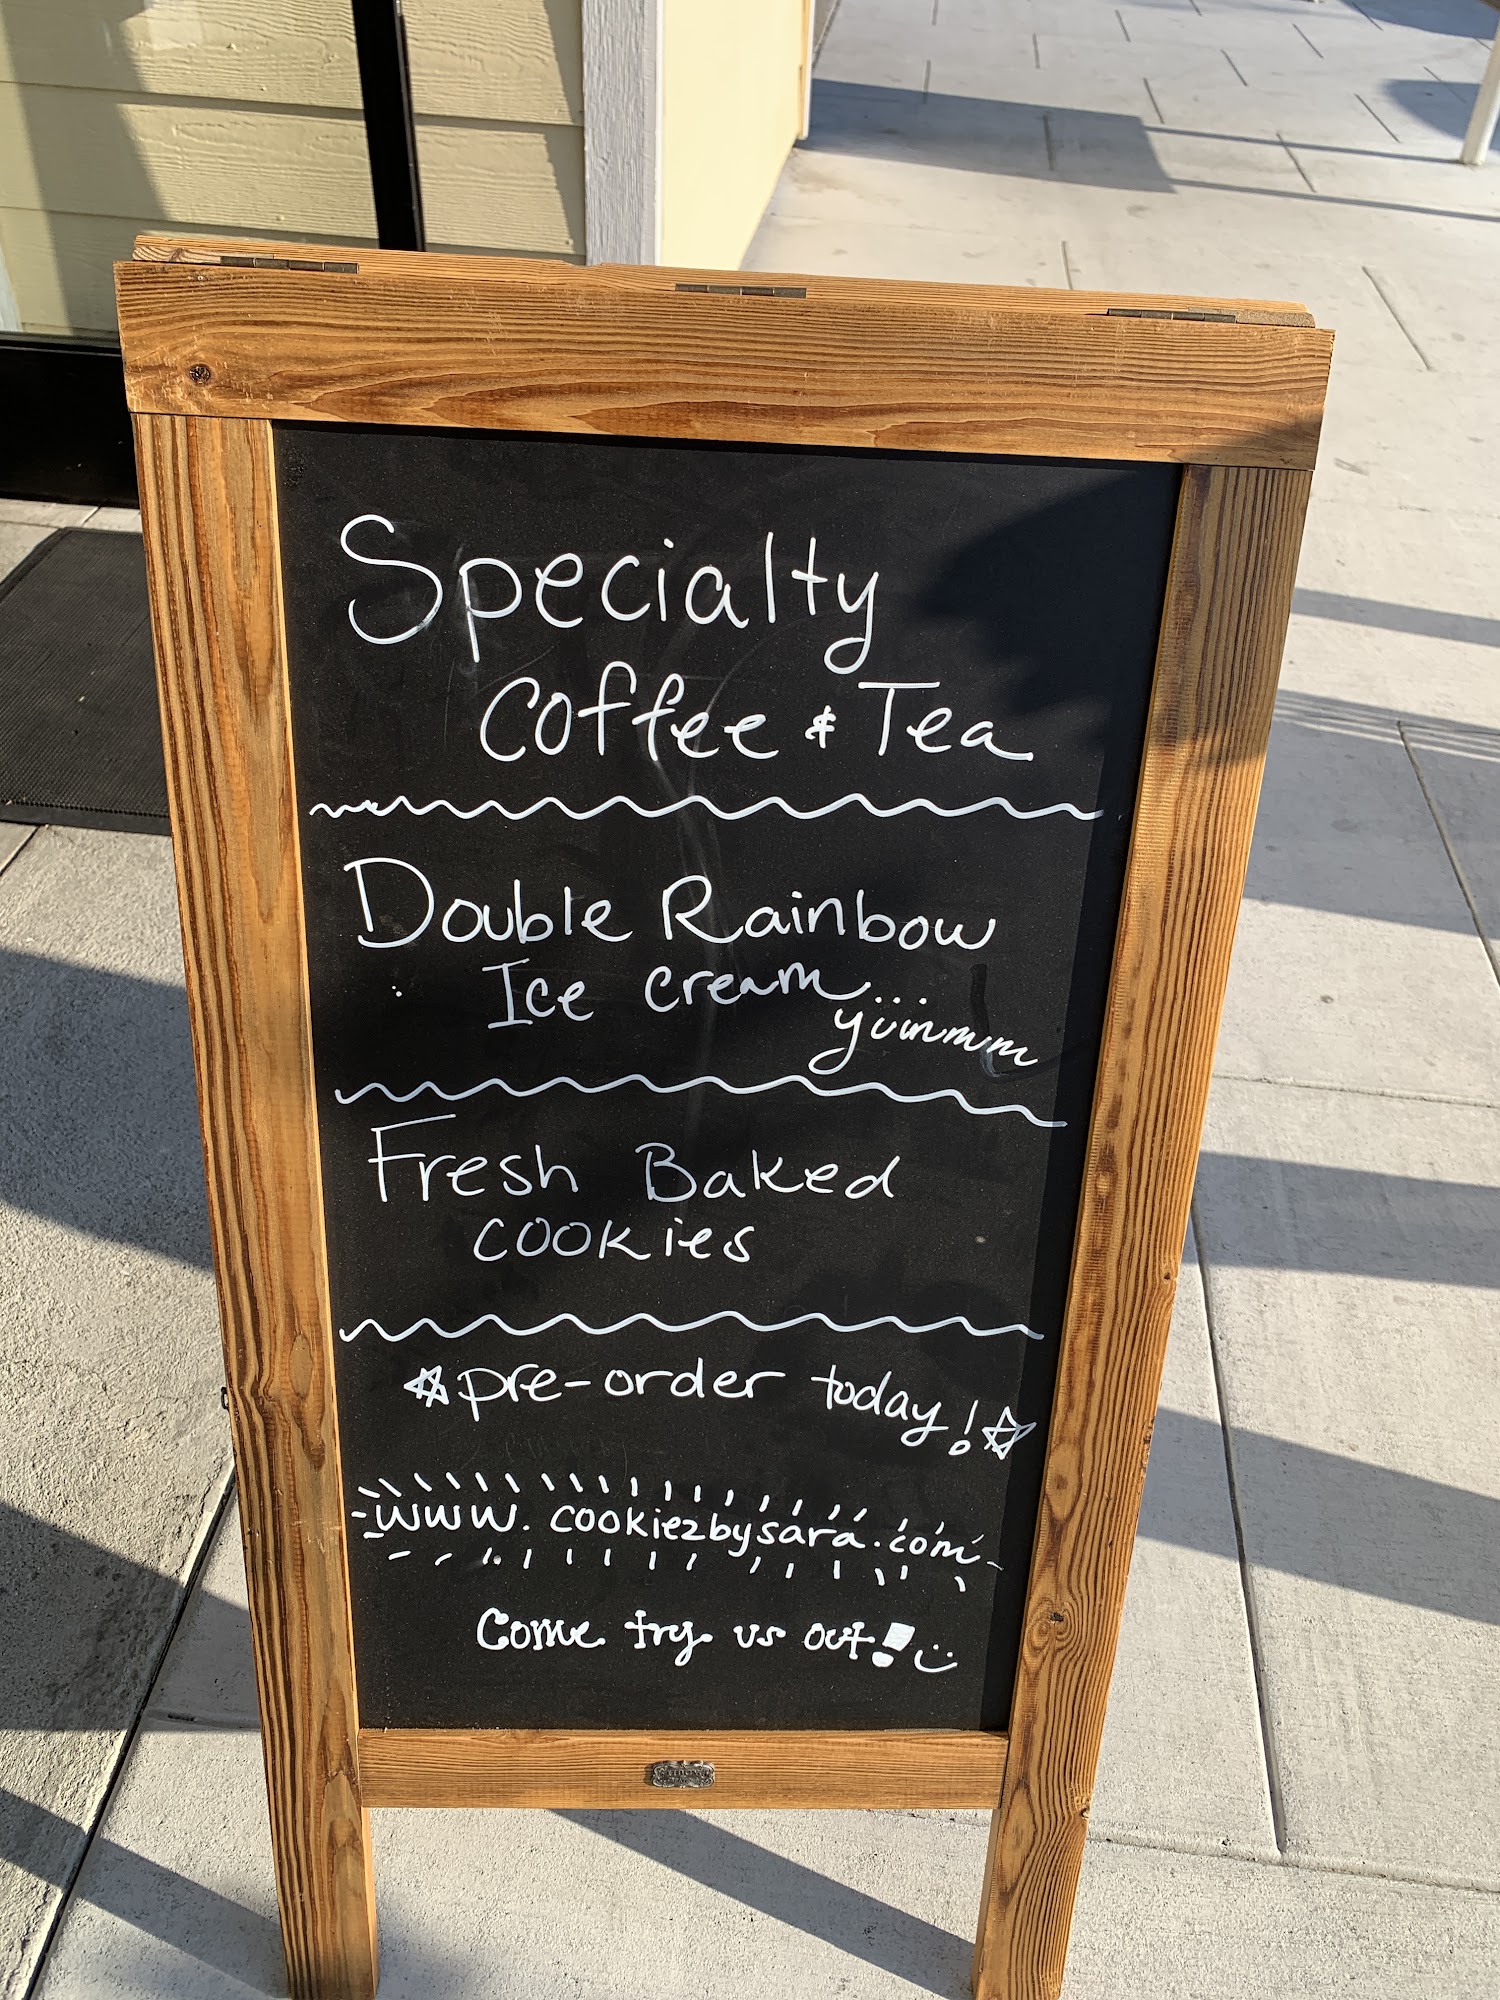 Specialty
Coffee & Tea
Double Rainbow
Ice cream...
yummm
Fresh Baked
cookies
pre-order today!
www.cookiezbysara.com
Come try us out!